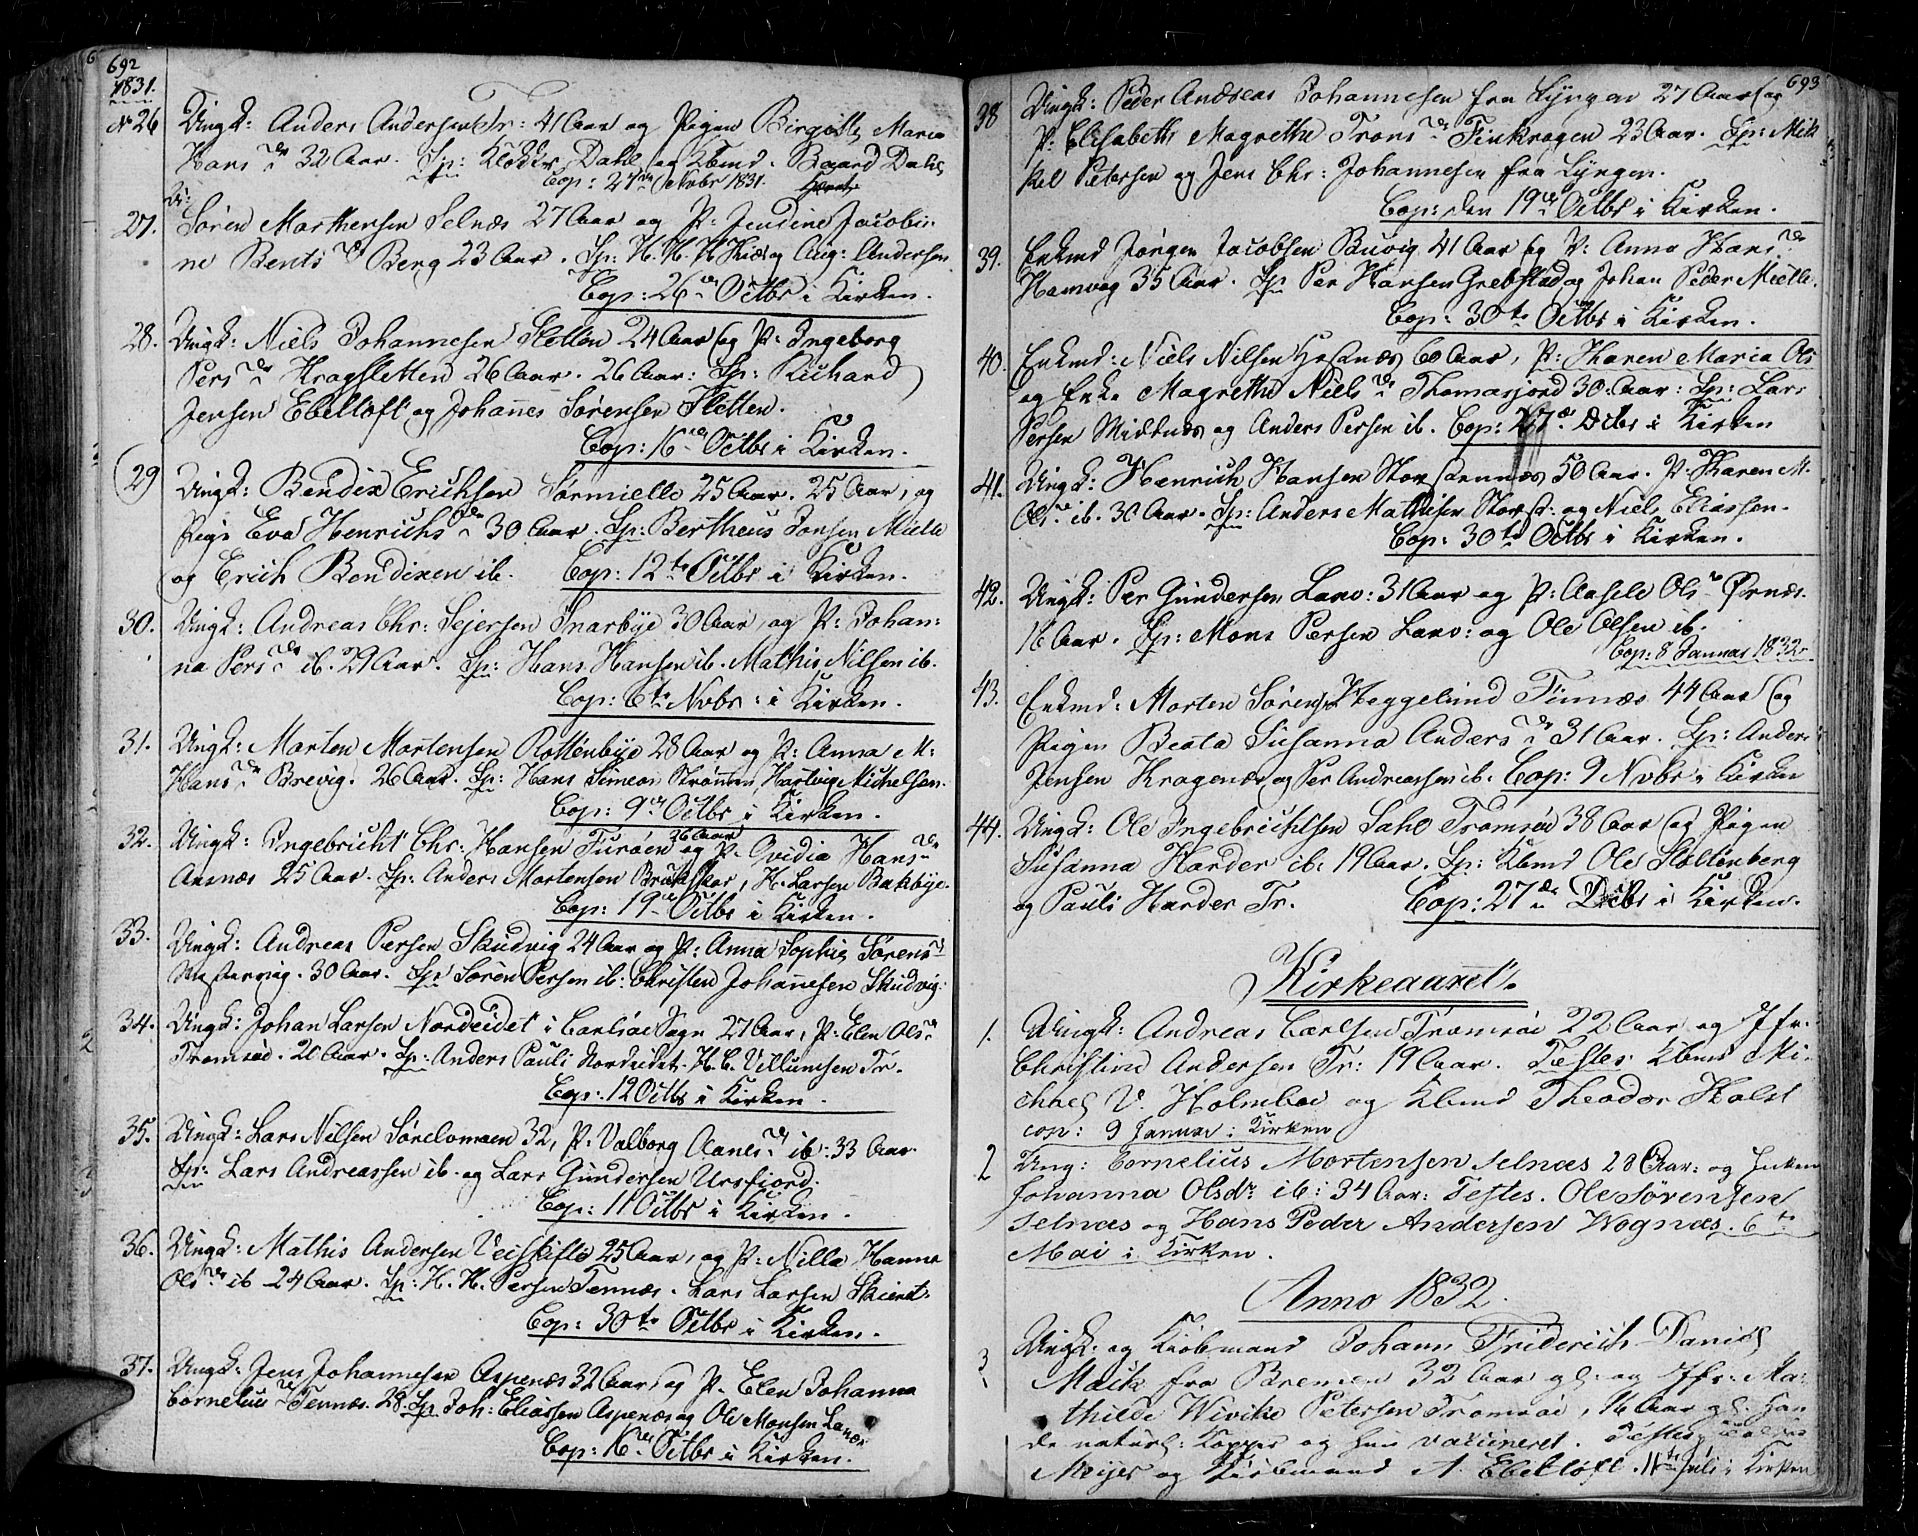 692
1831.
No 26 Ungk: Anders Andersen Tr: 41 Aar og Pigen Birgitte Maria
Hans dr 32 Aar. Sp: Klokker Dahl og Kbmd. Baard Dahl
Cop: 27 Novbr 1831.
27. Søren Morthensen Selnæs 27 Aar og P: Jendine Jacobi-
ne Bents dr Berg 23 Aar. Sp: H. H. H. og Aug: Andersen
Cop: 26 Octbr i Kirken.
28. Ungk: Niels Johannesen Sletten 24 Aar og P: Ingeborg
Pers dr Kragsletten 26 Aar. 26 Aar: Sp: Richard
Jensen Ebeltoft og Johannes Sørensen Sletten.
Cop: 16 Octbr i Kirken.
29 Ungk: Bendix Erichsen Sørmielle 25 Aar. 25 Aar, og
Pige Eva Henrichs dr 30 Aar. Sp: Bertheus Jonsen Mielle
og Erich Bendixen ib. Cop: 12te Octbr i Kirken.
30. Ungk: Andreas Chr: Sejersen Snarbye 30 Aar, og P: Johan-
na Pers dr ib. 29 Aar. Sp: Hans Hansen ib. Mathis Nilsen ib.
Cop: 6te Novbr: i Kirken.
31. Ungk: Morten Mortensen Rottenbye 28 Aar og P: Anna M:
Hans dr Brevig. 26 Aar. Sp: Hans Simeon Strømmen Hartvig Michelsen.
Cop: 9 Octbr i Kirken.
32. Ungk: Ingebricht Chr. Hansen Turøen 36 Aar og P. Ovidia Hans dr
Aasnæs 25 Aar. Sp: Anders Mortensen H. Larsen Bakbye.
Cop: 19 Octbr i Kirken.
33. Ungk: Andreas Persen Skudvig 24 Aar og P: Anna Sophie Sørens dr
Mestervig. 30 Aar. Sp Søren Persen ib: Christen Johannesen Skudvig.
34. Ungk: Johan Larsen Nordeidet i Carlsøe Sogn 27 Aar, P. Elen Ols dr
Tromsøe. 20 Aar. Sp: Anders Pauli Nordeidet. H. C. Villumsen Tr.
Cop: 12 Octbr i Kirken.
35. Ungk: Lars Nilsen Sørelvmoen 32, P. Valborg Aanes dr ib. 33 Aar
Sp: Lars Andreassen ib. og Lars Gundersen Ursfiord.
Cop: 11 Octbr i Kirken.
36. Ungk: Mathis Andersen 25 Aar, og P: Nille Hanna
Ols dr ib 24 Aar. Sp: H. H. Persen Tennæs. Lars Larsen
Cop: 30te Octbr i Kirken.
37. Ungk: Jens Johannesen Aspenæs 32 Aar, og P. Elen Johanna
Cornelius dr Tennæs. 28. Sp Joh: Eliassen Aspenæs og Ole Monsen
Cop: 16 Octbr i Kirken.
693
38 Ungk: Peder Andreas Johannesen fra Lyngen 27 Aar og
P: Elisabeth Magrethe Trons dr Finkrogen 23 Aar. Sp: Mik
kel Petersen og Jens Chr: Johannesen fra Lyngen.
Cop: den 19 Octbr i Kirken.
39. Enkmd Jørgen Jacobsen Buvig 41 Aar og P: Anne Hans dr
Hamvog 35 Aar. Sp Per Hansen Grebstad og Johan Peder Mielle.
Cop: 30te Octbr i Kirken.
40. Enkmd: Niels Nilsen 60 Aar, P: Karen Maria Ols
og Enke Magrethe Niels dr Thomasjord 30 Aar: Sp: Lars
Persen og Anders Persen ib. Cop: 27 Decbr i Kirken
41. Ungk: Henrich Hansen Storstennæs 50 Aar. P. Karen M.
Ols dr ib. 30 Aar. Sp: Anders Mathisen Storst: og Niels Eliassen.
Cop: 30te Octbr i Kirken.
42. Ungk: Per Gundersen Lanv: 31 Aar og P: Aasele Ols dr Ørnæs.
16 Aar. Sp: Mons Persen Lanv: og Ole Olsen ib.
Cop: 8 Januar 1832
43. Enkmd: Morten Sørensen Heggelund Finnæs 44 Aar og
Pigen Beata Susanna Anders dr 31 Aar. Sp: Anders
Jensen Kragenæs og Per Andreassen ib. Cop: 9 Novbr i Kirken
44. Ungk: Ole Ingebrichtsen Dahl Tromsøe 38 Aar og Pigen
Susanna Harder ib: 19 Aar. Sp: Kbmd Ole Stoltenberg
og Pauli Harder Tr. Cop: 27de Decbr i Kirken.
Kirkeaaret.
1. Ungk: Andreas Carlsen Tromsøe 22 Aar og Jfr:
Christine Andersen Tr: 19 Aar. Testes: Kbmd Mi-
chael V. Holmboe og Kbmd Theodor Holst
cop: 9 Januar i Kirken
2 Ung: Cornelius Mortensen Selnæs 28 Aar: og Enken
Johanna Olsdr ib: 34 Aar: Testes. Ole Sørensen
Selnæs og Hans Peder Andersen Wognæs. 6te
Mai i Kirken.
Anno 1832.
3 Ungk: og Kiøbmand Johann Friderich Daniel
Mack fra Bremen 32 Aar gl: og Jfr: Ma-
thilde Wivike Petersen Tromsøe, 16 Aar gl. Han
de naturl: Kopper og hun vaccineret. Testes:
Meijer og Kiøbmand A. Ebeltoft. 11te Juli i Kirken